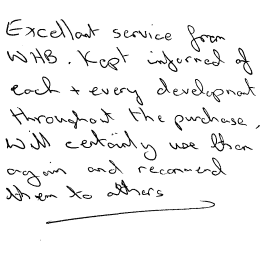 Excellent service from
WHB. Kept informed of
each + every development
throughout the purchase.
Will certainly use them
again and recommend
them to others